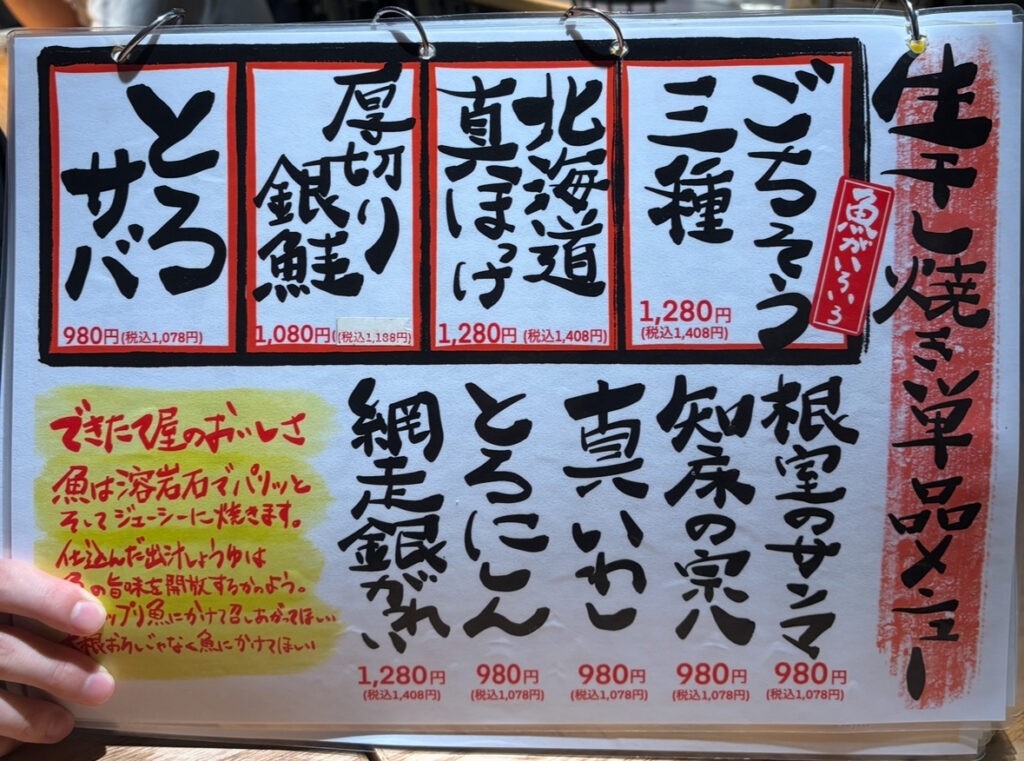 生干し焼き単品メニュー
ごちそう
三種
魚がいろいろ
1,280円
(税込1,408円)
北海道
真ほっけ
1,280円(税込1,408円)
厚切り
銀鮭
1,080円(税込1,188円)
とろ
サバ
980円(税込1,078円)
根室のサンマ
980円
(税込1,078円)
知床の宗八
980円
(税込1,078円)
真いわし
980円
(税込1,078円)
とろにしん
980円
(税込1,078円)
網走銀がれい
1,280円
(税込1,408円)
できたて屋のおいしさ
魚は溶岩石でパリッと
そしてジューシーに焼きます。
仕込んだ出汁しょうゆは
の旨味を開放するかのよう。
プリ魚にかけて召しあがってほしい
根おろしじゃなく魚にかけてほしい